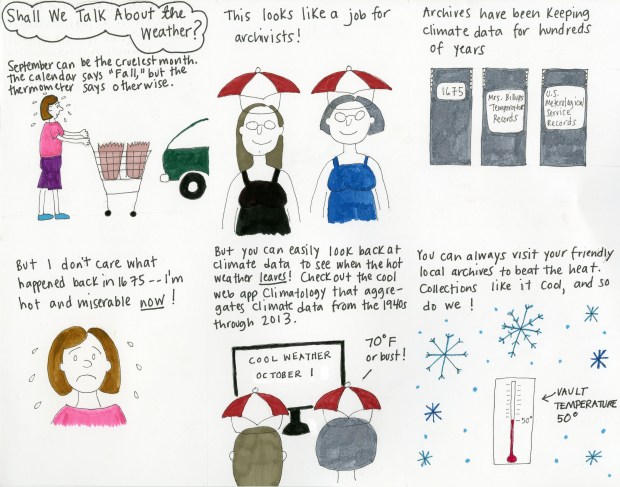 Shall We Talk About the
Weather?
September can be the cruelest month.
The calendar says "Fall," but the
thermometer says otherwise.
This looks like a job for
archivists!
Archives have been keeping
climate data for hundreds
of years
1675
Mrs. Billups
Temperature
Records
U.S.
Meterological
Service
Records
But I don't care what
happened back in 1675 -- I'm
hot and miserable now!
But you can easily look back at
climate data to see when the hot
weather leaves! Check out the cool
web app Climatology that aggre-
gates climate data from the 1940s
through 2013.
70°F
or bust!
COOL WEATHER
OCTOBER 1
You can always visit your friendly
local archives to beat the heat.
Collections like it cool, and so
do we!
50°
VAULT
TEMPERATURE
50°